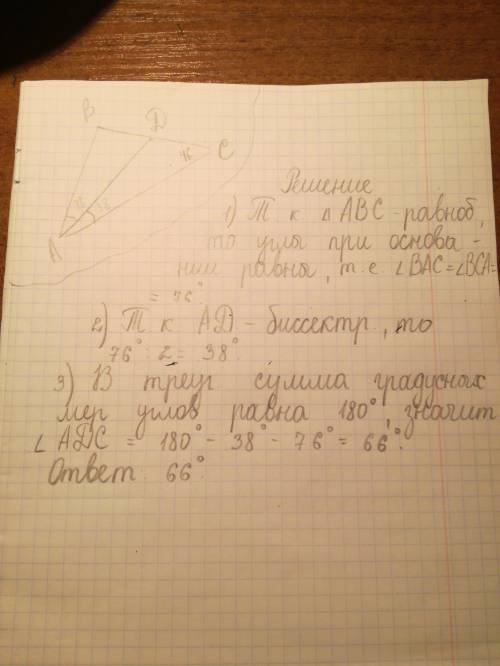 B
D
C
76
38 38
A
Решение
1) Т к △ ABC - равноб,
то углы при основа -
нии равны, т.е. ∠BAC=∠BCA=
= 76°.
2) Т к AD - биссектр, то
76° : 2 = 38°.
3) В треуг сумма градусных
мер углов равна 180°, значит
∠ ADC = 180° - 38° - 76° = 66°.
Ответ 66°